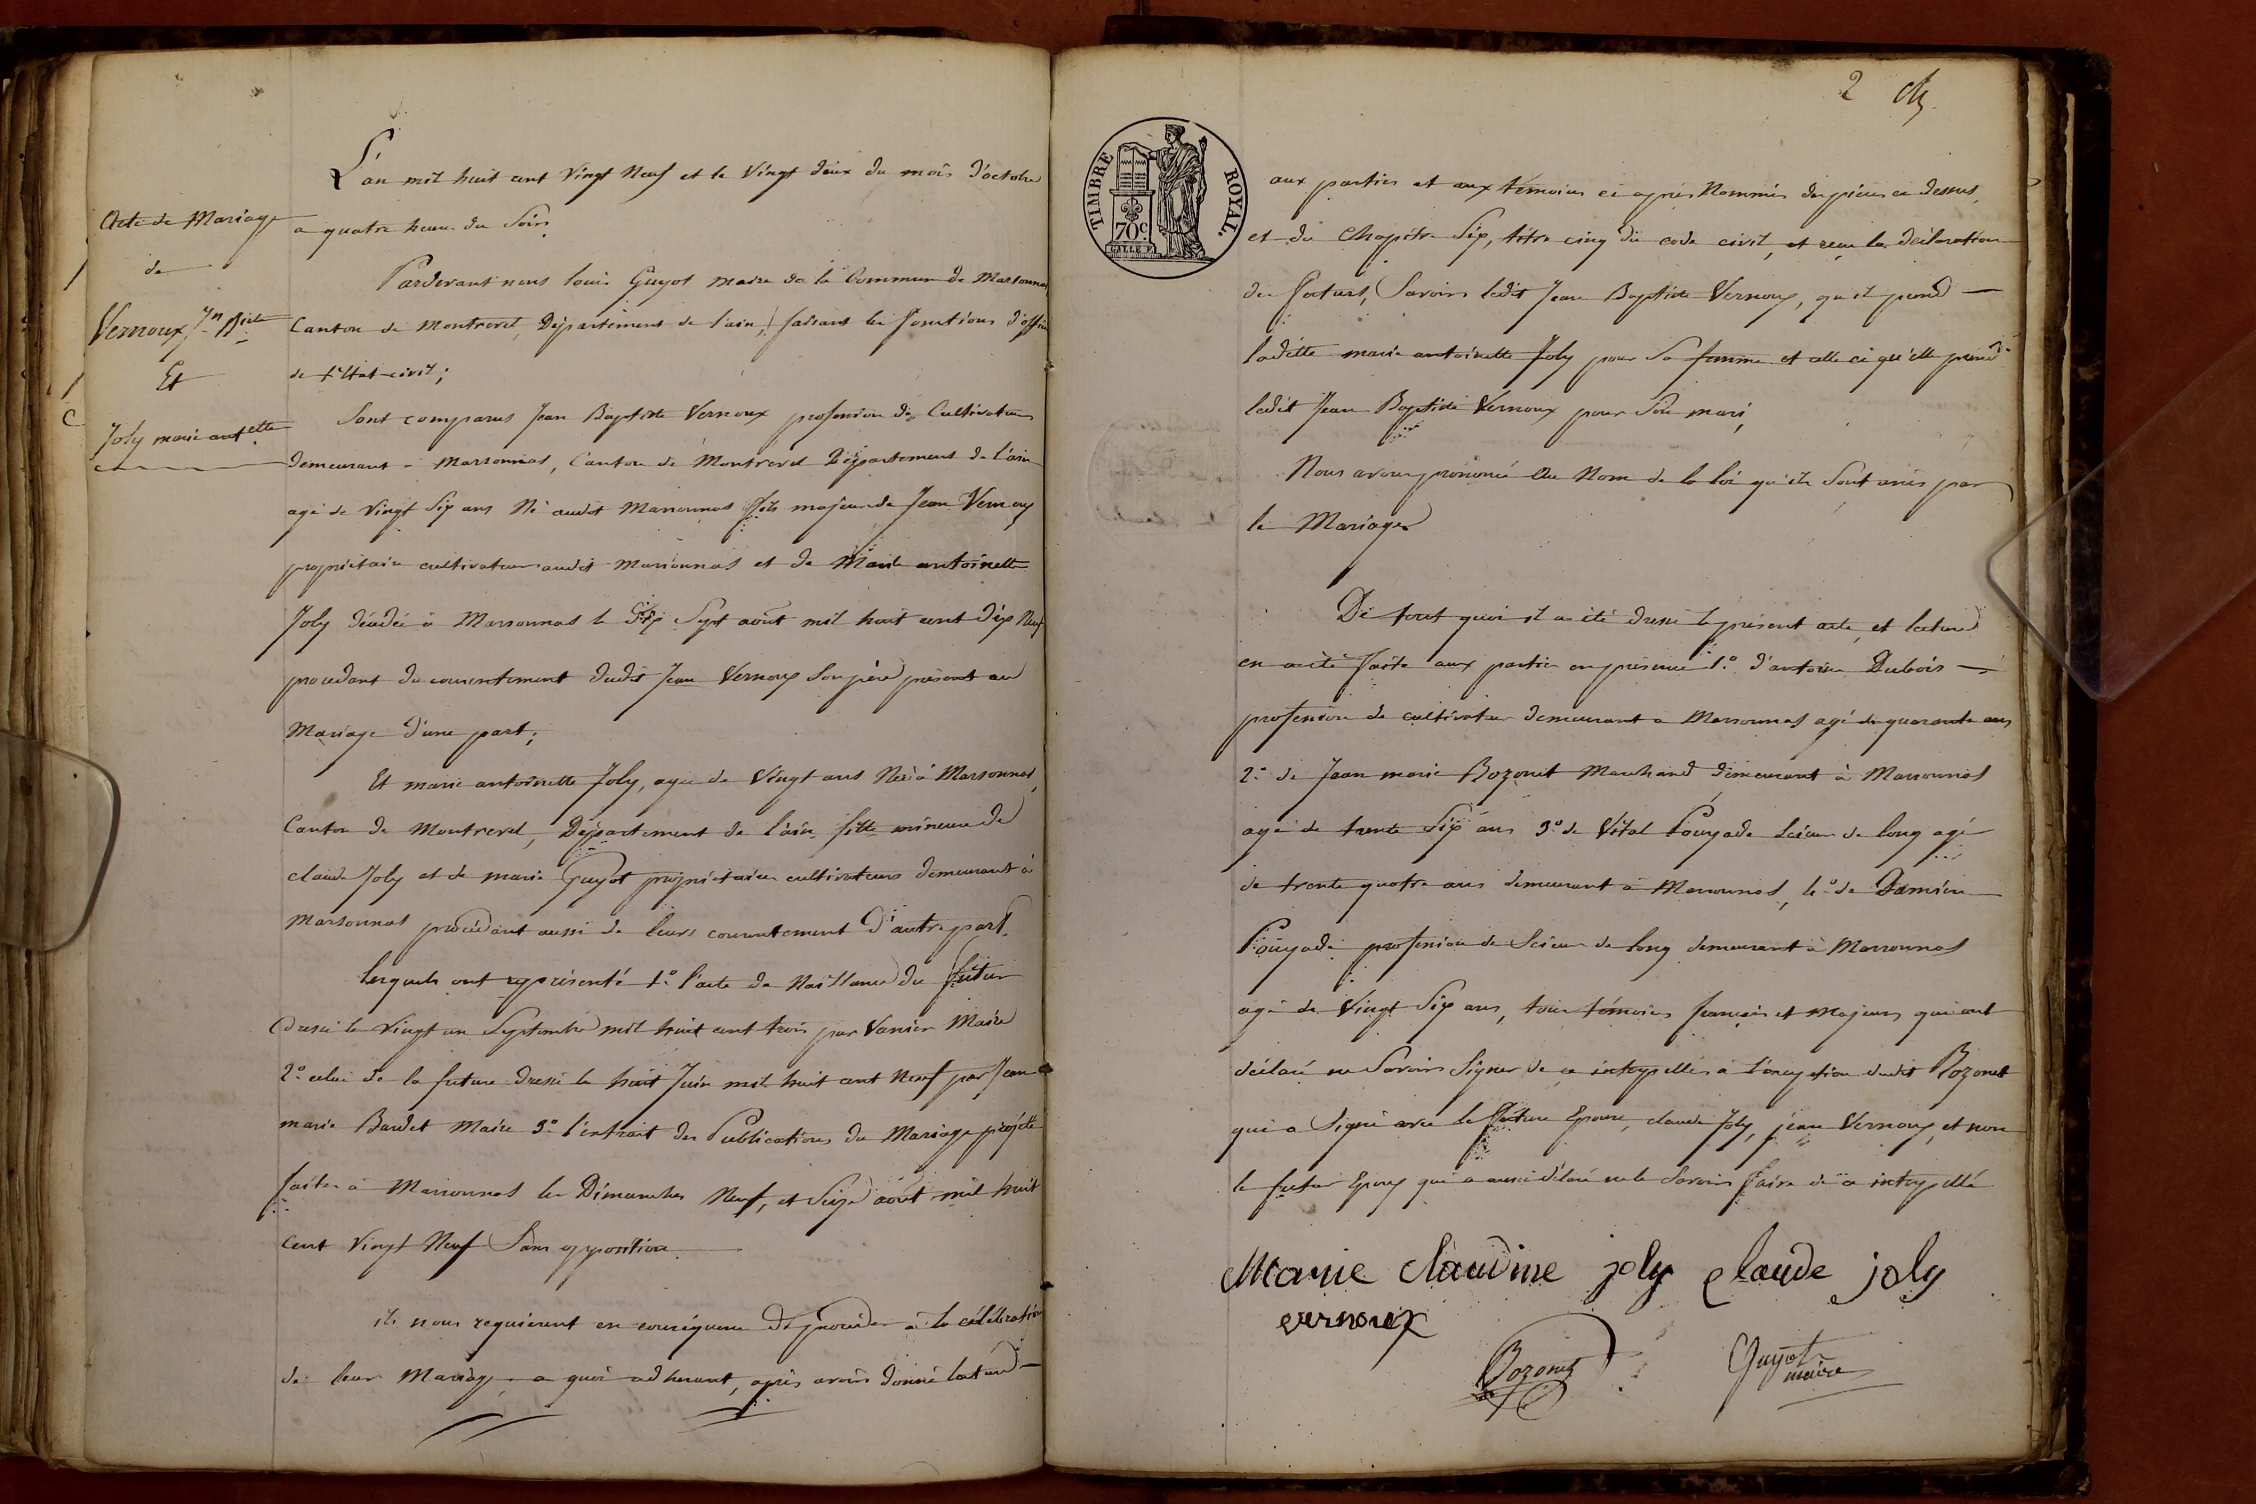 Acte de Mariage
de
Vernoux Jn Bte
Et
Joly marie antette
L'an mil huit cent Vingt Neuf et le Vingt deux du mois d'octobre
a quatre heures du Soir
Pardevant nous louis Guyot maire de la Commune de Marsonnas
Canton de Montrevel, Département de l'ain, faisant les fonctions d'offi
de l'Etat-civil;
Sont comparus Jean Baptiste Vernoux profession de Cultivateur
demeurant à Marsonnas, Canton de Montrevel Département de l'ain
agé de Vingt Six ans Né audit Marsonnas fils majeur de Jean Vernoux
propriétaire cultivateur audit Marsonnas et de Marie antoinette
Joly décédée à Marsonnas le Sept août mil huit cent dix Neuf
procedant du consentement dudit Jean Vernoux Son père présent au
Mariage d'une part;
Et marie antoinette Joly, agée de Vingt ans Née à Marsonnas,
Canton de Montrevel, Département de l'ain fille mineure de
claude Joly et de marie Guyot propriétaires cultivateurs demeurant à
Marsonnas procedant aussi de leurs consentement d'autre part.
lesquels ont représenté 1.º l'acte de Naissance du futur
dressé le Vingt un Septembre mil huit cent trois par Vanier Maire
2.º celui de la future dressé le huit Juin mil huit cent Neuf par Jean
marie Bardet Maire 3.º l'extrait des Publications du Mariage projeté
faites à Marsonnas les Dimanches Neuf, et Seize août mil huit
cent Vingt Neuf Sans opposition
ils nous requierent en conséquence de proceder à la célébration
de leur Mariage; a quoi adherant, après avoir donné lecture
2
TIMBRE ROYAL.
70c.
aux parties et aux témoins ci après Nommés des pièces ci dessus,
et du Chapitre Six, titre cinq du code civil, et reçu la déclaration
des futurs, Savoir ledit Jean Baptiste Vernoux, qu'il prend
ladite marie antoinette Joly pour Sa femme et celle ci qu'elle prend
ledit Jean Baptiste Vernoux pour Son mari,
Nous avons prononcé Au Nom de la loi qu'ils Sont unis par
le Mariage
De tout quoi il a été dressé le présent acte, et lecture
en a été faite aux parties en présence 1.º d'antoine Dubois
profession de cultivateur demeurant a Marsonnas agé de quarante ans
2.º de Jean marie Bozonet Marchand demeurant à Marsonnas
agé de trente Six ans 3.º de Vital Pouyade Scieur de long agé
de trente quatre ans demeurant à Marsonnas, 4.º de Damien
Pouyade profession de Scieur de long demeurant à Marsonnas
agé de Vingt Six ans, tous témoins français et Majeurs qui ont
déclaré ne Savoir Signer de ce interpellés à l'exception dudit Bozonet
qui a Signé avec la future Epouse, claude Joly, jean Vernoux, et non
le futur Epoux qui a aussi déclaré ne le Savoir faire de ce interpellé
Marie claudine joly claude joly
vernoux
Bozonet Guyot
maire